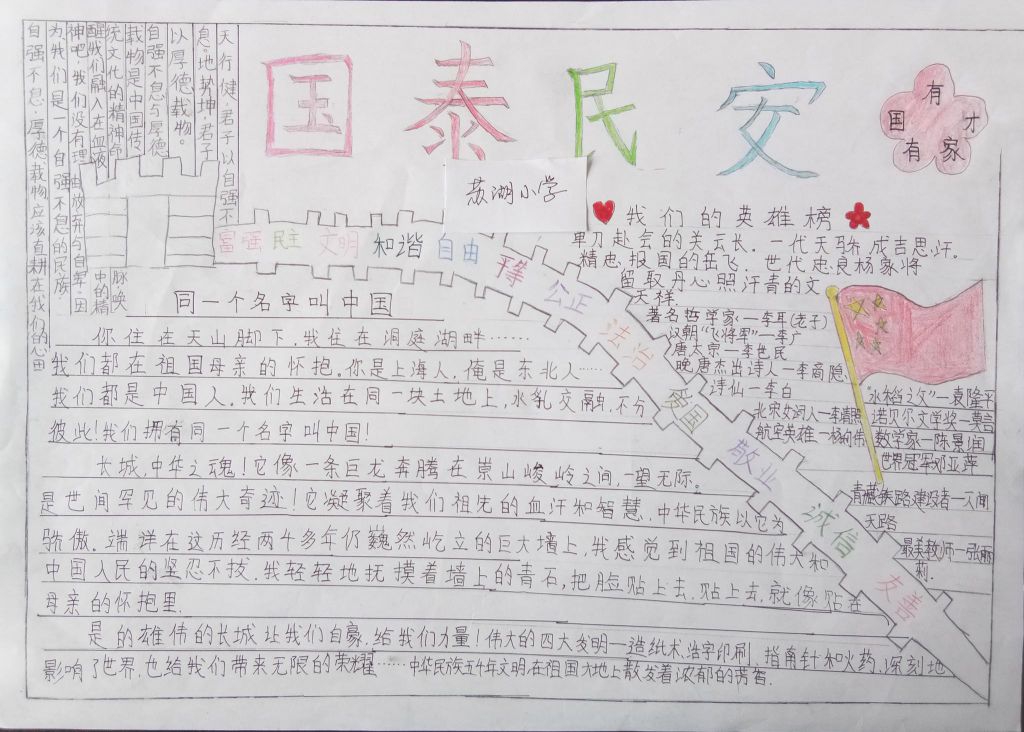 国泰民安
有国才有家
苏湖小学
天行健,君子以自强不
息。地势坤,君子
以厚德载物。
自强不息与厚德
载物是中国传
统文化的精神命
脉唤
醒我们融入在血液
中的精
神吧,我们没有理由放弃与自卑,因
为我们是一个自强不息的民族,
自强不息,厚德载物,应该直耕在我们的心田
富强 民主 文明 和谐 自由 平等 公正 法治 爱国 敬业 诚信 友善
我们的英雄榜
单刀赴会的关云长.一代天骄,成吉思汗。
精忠报国的岳飞.世代忠良杨家将
留取丹心照汗青的文
天祥.
著名哲学家—李耳(老子)
汉朝“飞将军”—李广
唐太宗—李世民
晚唐杰出诗人—李商隐
诗仙—李白
北宋女词人—李清照
航空英雄—杨利伟
“水稻之父”—袁隆平
诺贝尔文学奖—莫言
数学家—陈景润
世界冠军邓亚萍
青藏铁路建设者—天闻
天路
最美教师—张丽
莉.
同一个名字叫中国
你住在天山脚下,我住在洞庭湖畔……
我们都在祖国母亲的怀抱。你是上海人,俺是东北人……
我们都是中国人.我们生活在同一块土地上,水乳交融,不分
彼此!我们拥有同一个名字叫中国!
长城,中华之魂!它像一条巨龙奔腾在崇山峻岭之间,一望无际。
是世间罕见的伟大奇迹!它凝聚着我们祖先的血汗和智慧,中华民族以它为
骄傲.端详在这历经两千多年仍巍然屹立的巨大墙上,我感觉到祖国的伟大和
中国人民的坚忍不拔.我轻轻地抚摸着墙上的青石,把脸贴上去.贴上去,就像贴在
母亲的怀抱里.
是的雄伟的长城让我们自豪,给我们力量!伟大的四大发明—造纸术.活字印刷.指南针和火药.深刻地
影响了世界.也给我们带来无限的荣耀……中华民族五千年文明,在祖国大地上散发着浓郁的芳香.